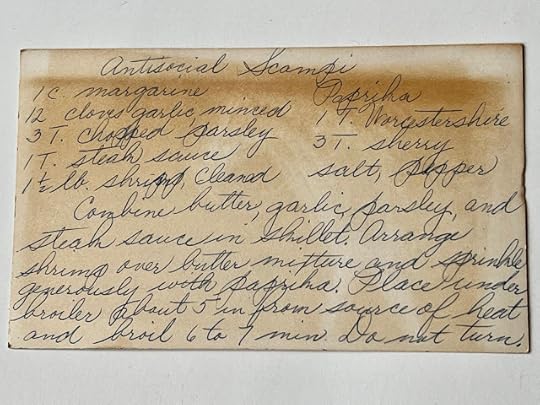 Antisocial Scampi
1 C margarine Paprika
12 cloves garlic, minced 1 T Worcestershire
3 T. chopped parsley 3 T. sherry
1 T. steak sauce salt, pepper
1½ lb. shrimp, cleaned
Combine butter, garlic, parsley, and
steak sauce in skillet. Arrange
shrimp over butter mixture and sprinkle
generously with paprika. Place under
broiler about 5 in from source of heat
and broil 6 to 7 min. Do not turn.